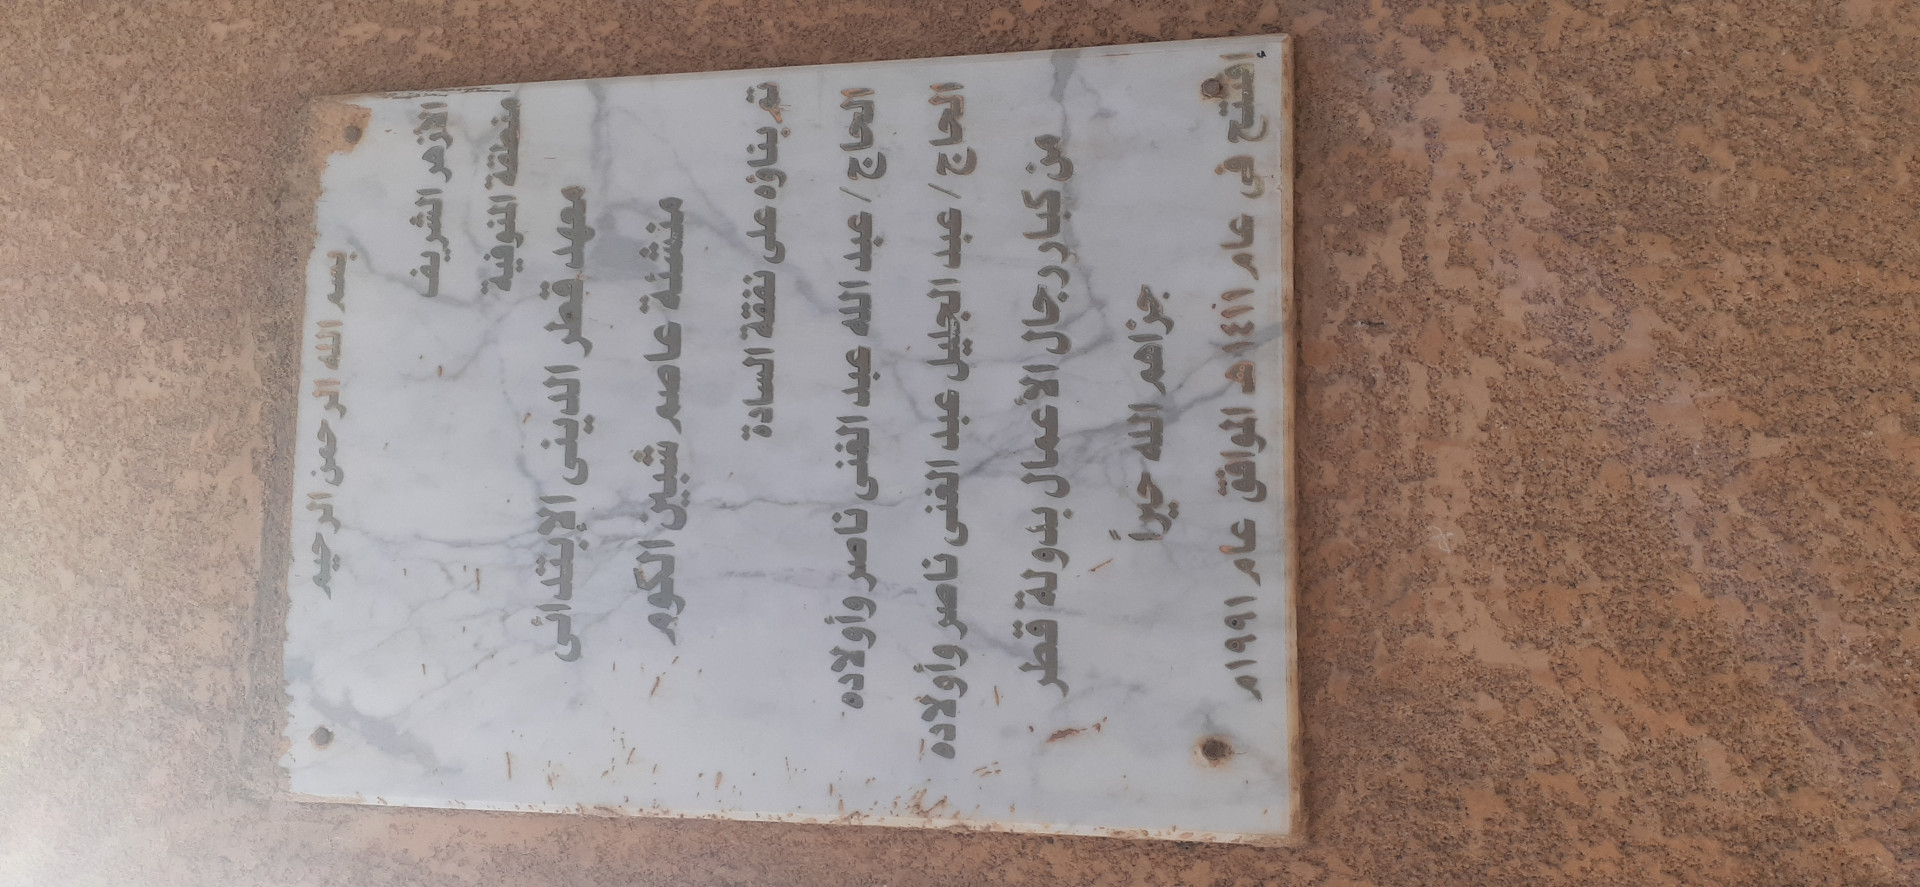 بسم الله الرحمن الرحيم
الأزهر الشريف
منطقة المنوفية
معهد قطر الدينى الإبتدائى
منشئة عاصم شبين الكوم
تم بناؤه على نفقة السادة
الحاج / عبد الله عبد الغنى ناصر وأولاده
الحاج / عبد الجليل عبد الغنى ناصر وأولاده
من كبار رجال الأعمال بدولة قطر
جزاهم الله خيراً
إفتتح فى عام ١٤١١هـ الموافق عام ١٩٩١م